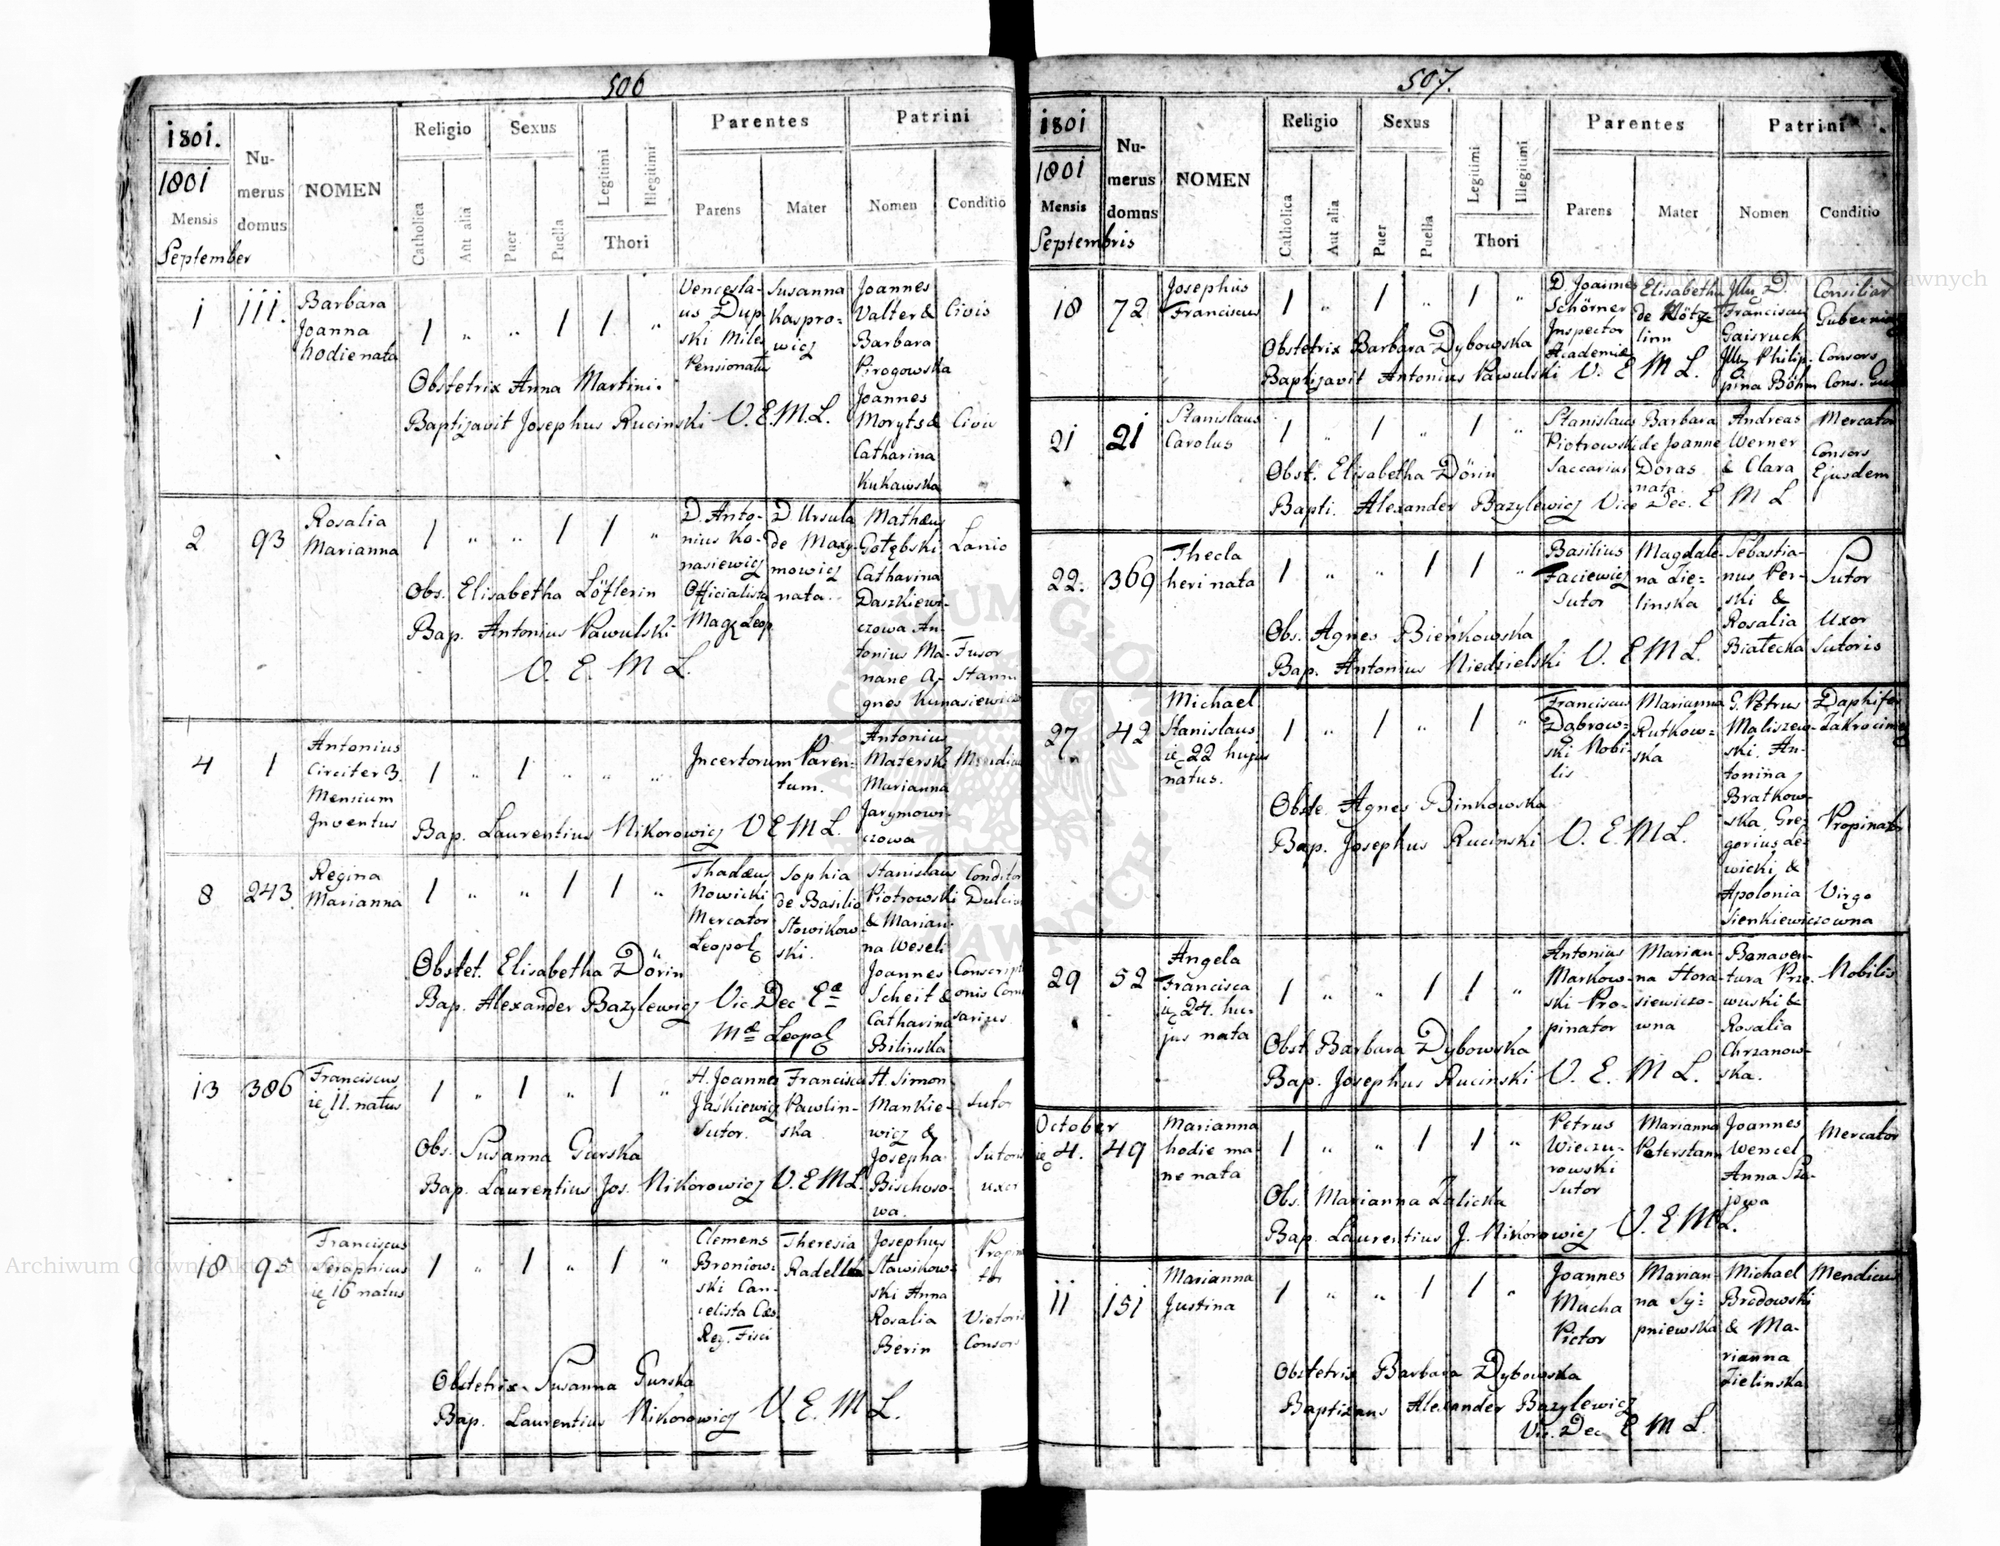 506
1801.
1801
Mensis
September
Nu-
merus
domus
NOMEN
Religio
Catholica
Aut alia
Sexus
Puer
Puella
Legitimi
Illegitimi
Thori
Parentes
Parens
Mater
Patrini
Nomen
Conditio
1
111.
Barbara
Joanna
hodie nata
1 " " 1 1 "
Vencesla-
us Dup
ski Miles
Pensionatus
Susanna
Kaspro-
wicz
Joannes
Valter &
Barbara
Pirogowska
Joannes
Moryts &
Catharina
Kukawska
Civis
Civis
Obstetrix Anna Martini.
Baptizavit Josephus Rucinski V. E. M. L.
2
93
Rosalia
Marianna
1 " " 1 1 "
D. Anto-
nius Ko-
nasiewicz
Officialista
Mag. Leop.
D. Ursula
de Maxy-
mowicz
nata.
Mathæus
Gołębski
Catharina
Daszkiewi-
czowa An-
tonius Ma-
nane A-
gnes Kunasiewicz
Lanio
Fusor
Stanni
Obs. Elisabetha Löflerin
Bap. Antonius Pawulski
V. E. M L.
4
1
Antonius
Circiter 3
Mensium
Inventus
1 " 1 " " "
Incertorum Paren-
tum.
Antonius
Materski
Marianna
Jarymowi-
czowa
Bap. Laurentius Nikorowicz V E M L.
8
243.
Regina
Marianna
1 " " 1 1 "
Thadæus
Nowicki
Mercator
Leopol
Sophia
de Basilio
Słowikow-
ski.
Stanislaus
Piotrowski
& Marian-
na Weseli
Joannes
Scheit &
Catharina
Bilinska
Obstet. Elisabetha Dörin
Bap. Alexander Bazylewicz Vic. Dec Eæ
Mæ Leopol
13
386
Franciscus
ię 11. natus
1 " 1 " 1 "
H. Joannes
Jaśkiewicz
Sutor.
Francisca
Pawlin-
ska
H. Simon
Mankie-
wicz &
Josepha
Bischoso-
wa.
Sutor
Sutoris
uxor
Obs. Susanna Gurska
Bap. Laurentius Jos. Nikorowicz V. E M L.
18
95
Franciscus
Seraphicus
ię 16 natus
1 " 1 " 1 "
Clemens
Broniow-
ski Can-
celista Cæs.
Reg. Fisci
Theresia
Radelli
Josephus
Stawikow-
ski Anna
Rosalia
Berin
Consors
Obstetrix Susanna Gurska
Bap. Laurentius Nikorowicz V. E. M L.
507.
1801
1801
Mensis
Septembris
Nu-
merus
domus
NOMEN
Religio
Catholica
Aut alia
Sexus
Puer
Puella
Legitimi
Illegitimi
Thori
Parentes
Parens
Mater
Patrini
Nomen
Conditio
18
72
Josephus
Franciscus
1 " 1 " 1 "
D. Joannes
Schörner
Inspector
Academiæ
Elisabetha
de Klötz-
linn
Illu. D.
Franciscus
Gaisruck
Illu. Philip-
pina Böhm
Consiliar
Gubernii
Consors
Cons. Gub
Obstetrix Barbara Dybowska
Baptizavit Antonius Pawulski V. E M L.
21
21
Stanislaus
Carolus
1 " 1 " 1 "
Stanislaus
Piotrowski
Saccarius
Barbara
de Joanne
Doras
nata
Andreas
Werner
& Clara
Mercator
Consors
Ejusdem
Obst. Elisabetha Dörin
Bapti. Alexander Bazylewicz Vice Dec. E M L
22.
369
Thecla
heri nata
1 " " 1 1 "
Basilius
Faciewicz
Sutor
Magdale-
na Zie-
linska
Sebastia-
nus Per-
ski &
Rosalia
Białecka
Sutor
Uxor
Sutoris
Obs. Agnes Bieńkowska
Bap. Antonius Niedzielski V. E M L.
27
42
Michael
Stanislaus
ię 22 hujus
natus.
1 " 1 " 1 "
Franciscus
Dąbrow-
ski Nobi-
lis
Marianna
Rutkow-
ska
G. Petrus
Maliszew-
ski. An-
tonina
Bratkow-
ska, Gre-
gorius Le-
wicki &
Apolonia
Sienkiewiczowna
Propinator
Virgo
Obste. Agnes Binkowska
Bap. Josephus Rucinski V. E. M L.
29
52
Angela
Francisca
ię 24. hu-
jus nata
1 " " 1 1 "
Antonius
Markow-
ski Pro-
pinator
Marian-
na Hora-
siewiczo-
wna
Bonaven-
tura Prze-
wuski &
Rosalia
Chrzanow-
ska.
Nobilis
Obst. Barbara Dybowska
Bap. Josephus Rucinski V. E. M L.
October
ię 4.
49
Marianna
hodie ma-
ne nata
1 " " 1 1 "
Petrus
Wieczu-
rowski
Sutor
Marianna
Peterstann
Joannes
Wencel
Anna Sza-
jowa
Mercator
Obs. Marianna Zalicka
Bap. Laurentius J. Nikorowicz V. E M L.
11
151
Marianna
Justina
1 " " 1 1 "
Joannes
Mucha
Pictor
Marian-
na Sy-
pniewska
Michael
Bredowski
& Ma-
rianna
Zielinska
Mendicus
Obstetrix Barbara Dybowska
Baptizans Alexander Bazylewicz
Vic. Dec E M L.
Archiwum Główne Akt Dawnych
Archiwum Główne Akt Dawnych
ARCHIWUM GŁÓWNE AKT DAWNYCH